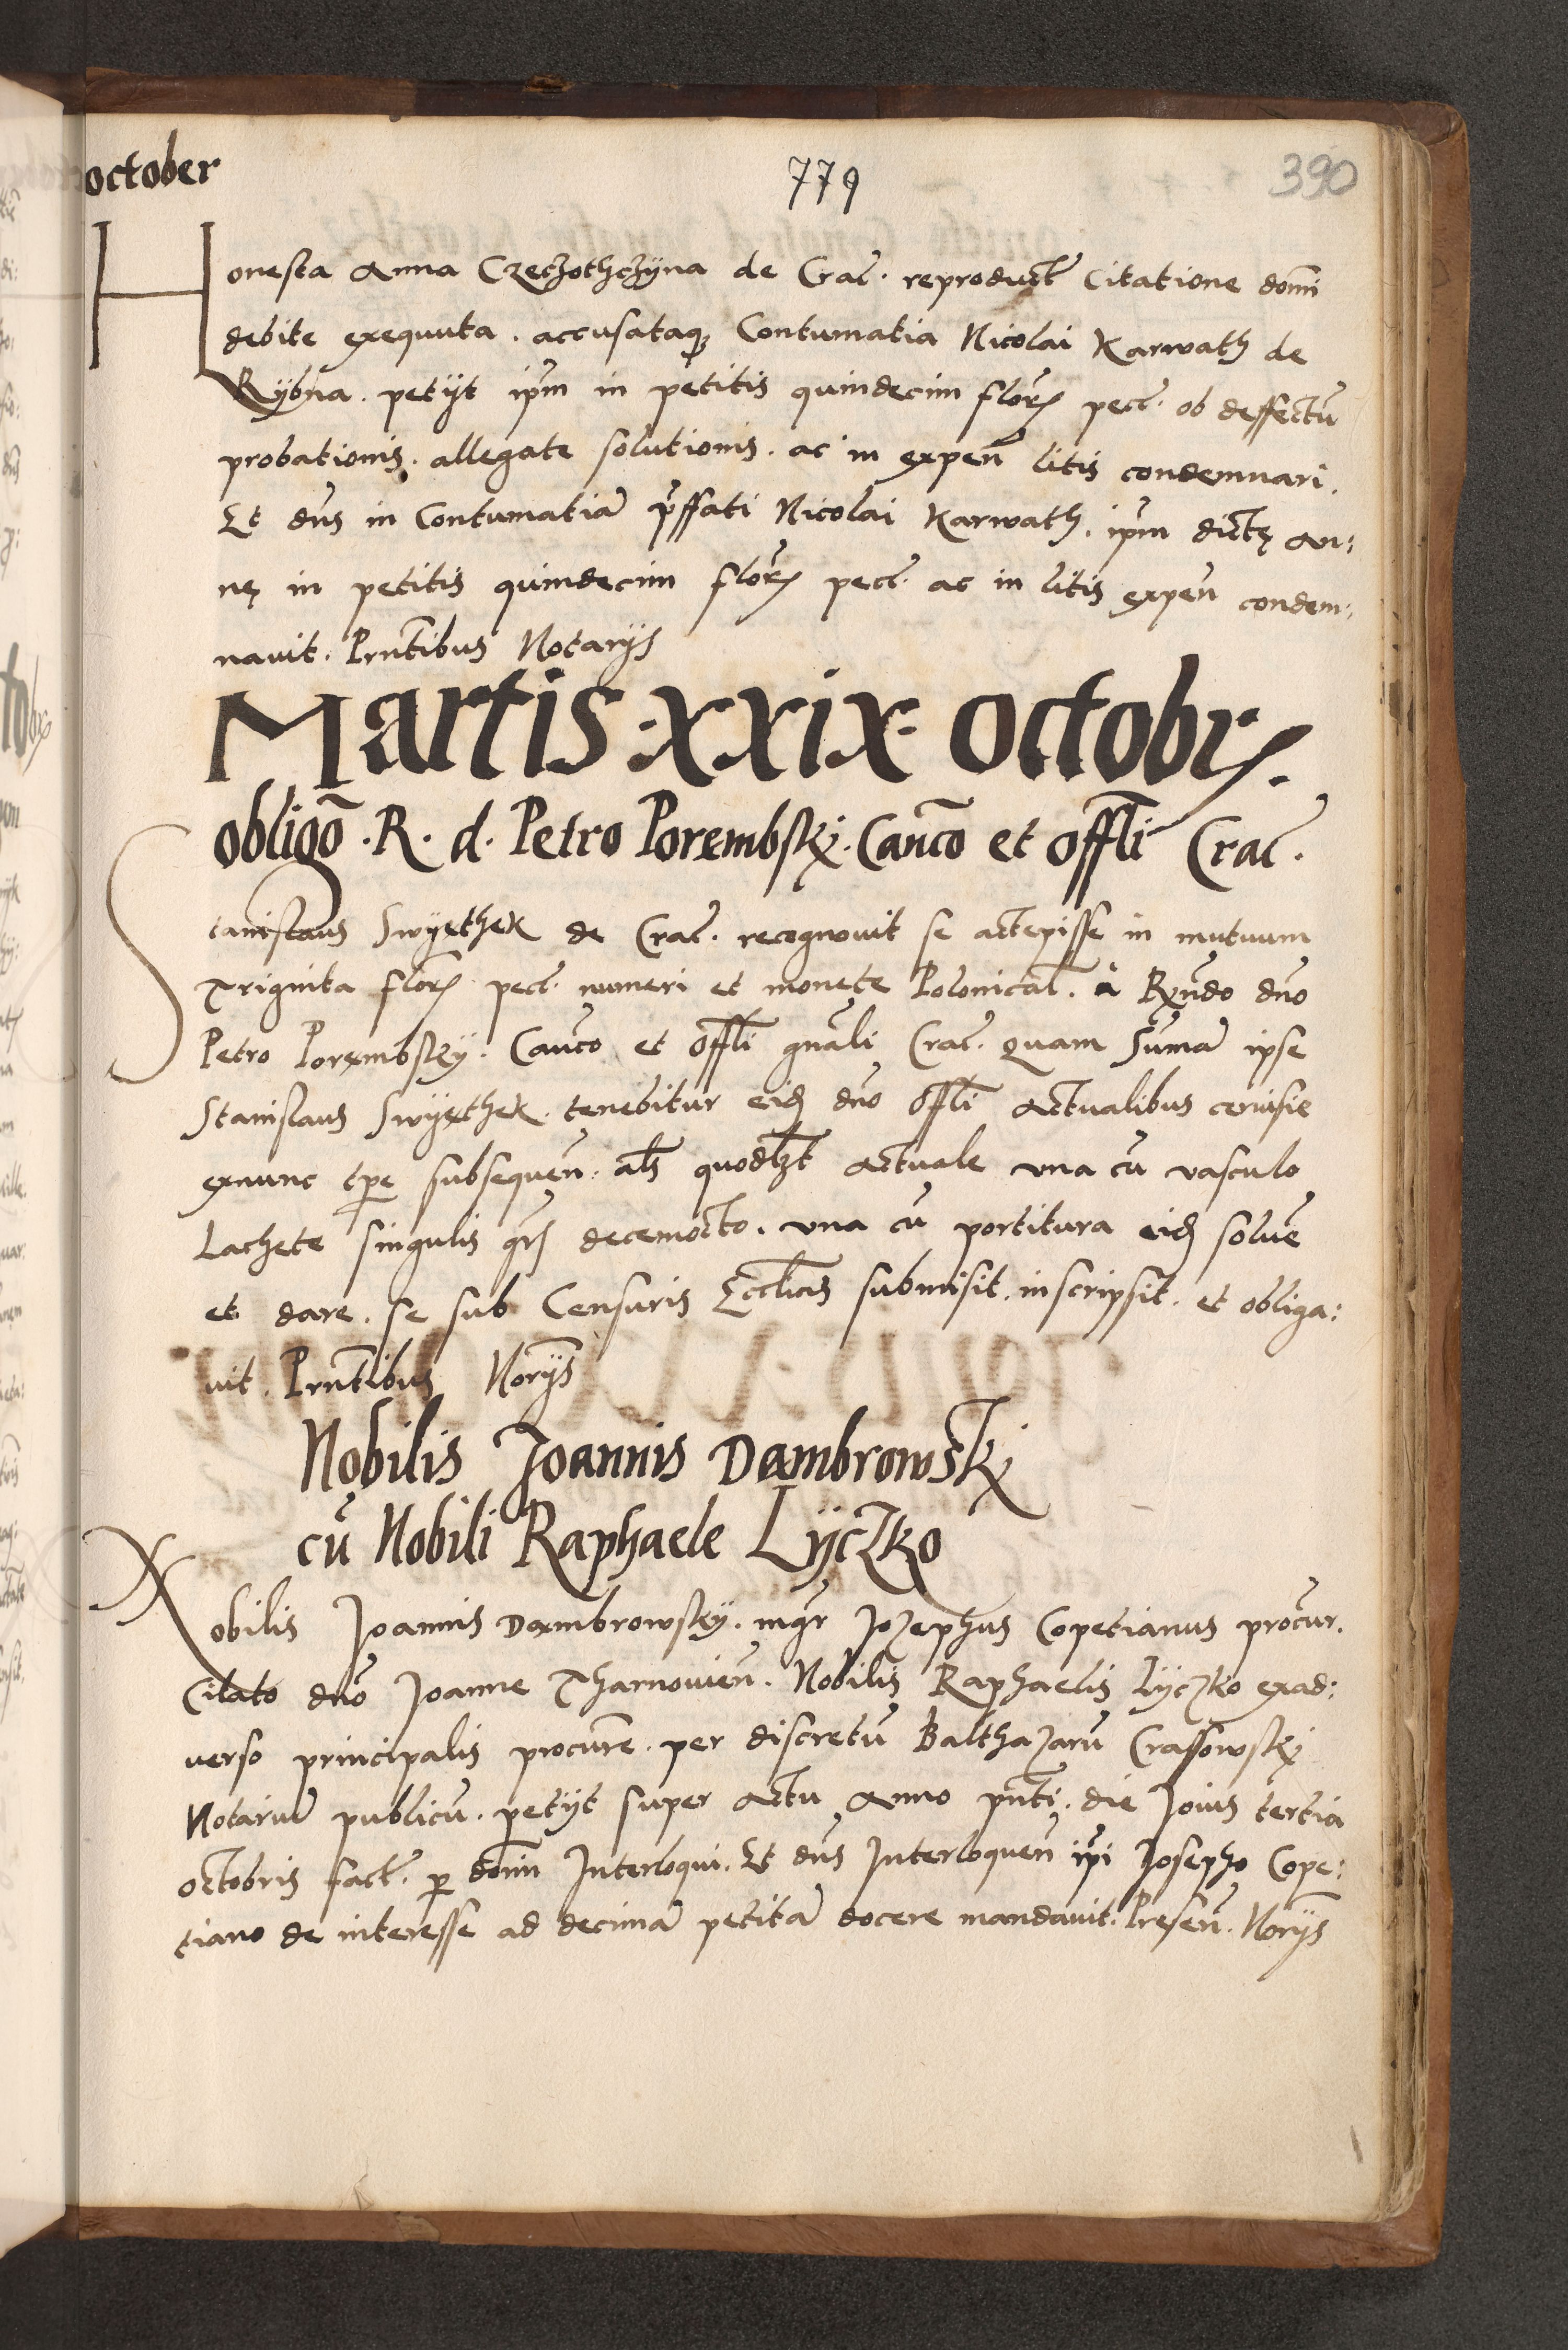 october
779
390
Honesta Anna Czeczothczÿna de Crac̃. reproduct̃ Citatione dom̃i
debite exequuta. accusataqȝ Contumatia Nicolai Karwath de
Rÿbna. petÿt ip̃m in petitis quindecim florꝝ pecc̃. ob deffectũ
probationis. allegate solutionis. ac in expeñ litis condemnari.
Et dñs in Contumatiã p̃ffati Nicolai Karwath. ip̃m dictę An:
nę in petitis quindecim florꝝ pecc̃. ac in litis expeñ condem:
nauit. Prñtibus Notarÿs
Martis .xxix. octobrꝭ.
obligõ .R. d. Petro Porembskj. Cañco et offlĩ Crac̃.
Stanislaus Swÿethek de Crac̃. recognouit se accepisse in mutuum
Triginta florꝝ pecc̃. numeri et monete Polonicał. à Rṽndo dño
Petro Porembskÿ. Cañco et offlĩ gñali Crac̃. quam Sum̃ã ipse
Stanislaus Swÿethek. tenebitur eidꝫ dño offlĩ actualibus ceruisie
exnunc tꝑe subsequeñ. als̃ quodlꝫt actuale vna cũ vasculo
Lachete singulis gr̃ꝭ decemocto. vna cũ portitura eidꝫ soluẽ
et dare. se sub Censuris Eccl̃icis submisit. inscripsit. et obliga:
uit. Prñtibus Nor̃ÿs
Nobilis Joannis Dambrowskj
cũ Nobili Raphaele Lÿczko
Nobilis Joannis Dambrowskÿ. mgr̃ Jozephus Copetianus procur̃.
Citato dño Joanne Tharnouieñ. Nobilis Raphaelis Lÿczko exad:
uerso principalis procur̃e. per discretũ Balthazarũ Crassowskj
Notariũ publicũ. petÿt super actu Anno pñti. die Jouis tertia
octobris fact̃. ꝑ dom̃ Interloqui. Et dñs Interloqueñ ip̃i Josepho Cope:
tiano de interesse ad decimã petitã docere mandauit. Preseñ. Nor̃ÿs